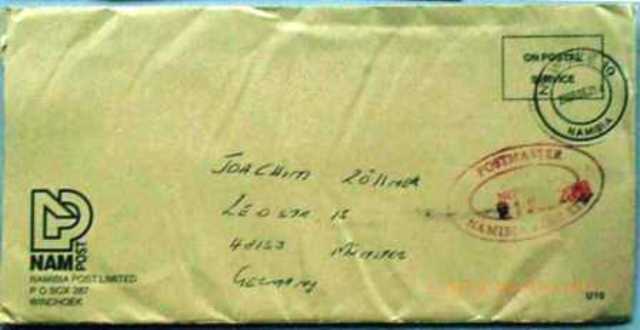 ON POSTAL
SERVICE
NAMIBIA
POSTMASTER
NAMIBIA
JOACHIM ZÖLLNER
LEOSTR. 13
48153 MÜNSTER
GERMANY
NAM
POST
NAMIBIA POST LIMITED
P O BOX 287
WINDHOEK